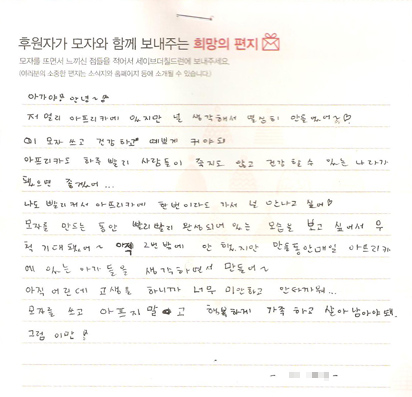 후원자가 모자와 함께 보내주는 희망의 편지
모자를 뜨면서 느끼신 점들을 적어서 세이브더칠드런에 보내주세요.
(여러분의 소중한 편지는 소식지와 홈페이지 등에 소개될 수 있습니다.)
아가야! 안녕~
저 멀리 아프리카에 있지만 널 생각해서 열심히 만들었어~♡
이 모자 쓰고 건강하고 예쁘게 커야되
아프리카도 하루 빨리 사람들이 죽지도 않고 건강할 수 있는 나라가
됐으면 좋겠어...
나도 빨리 커서 아프리카에 한번이라도 가서 널 만나고 싶어♡
모자를 만드는 동안 빨리빨리 완성되어 있는 모습을 보고 싶어서 무
척 기대됐어~ 아직 2번밖에 안 했지만 만들동안 매일 아프리카
에 있는 아가들을 생각하면서 만들어~
아직 어린데 고생을 하니까 너무 미안하고 안타까워...
모자를 쓰고 아프지말고 행복하게 가족하고 살아남아야돼.
그럼 이만